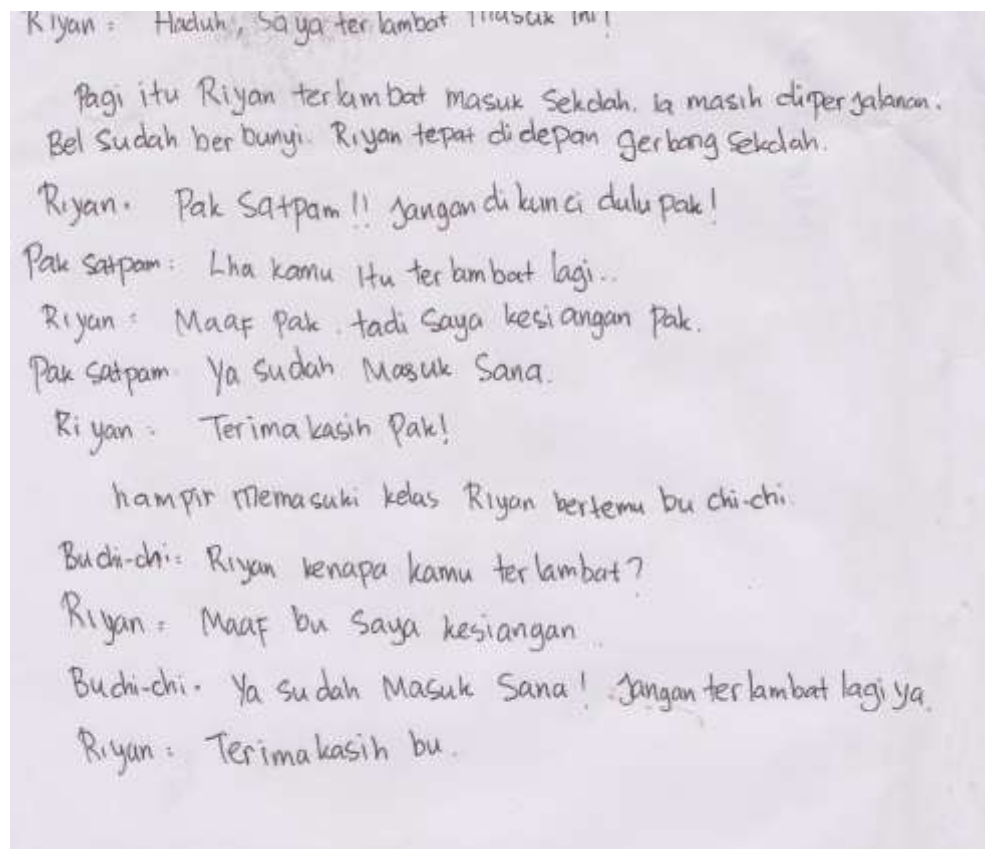 Riyan : Haduh, Saya terlambat masuk ini!
Pagi itu Riyan terlambat masuk Sekolah. Ia masih diperjalanan.
Bel Sudah berbunyi. Riyan tepat didepan gerbang sekolah.
Riyan. Pak Satpam!! Jangan dikunci dulu pak!
Pak satpam : Lha kamu Itu terlambat lagi..
Riyan : Maaf Pak. tadi Saya kesiangan Pak.
Pak satpam Ya Sudah Masuk Sana.
Riyan : Terimakasih Pak!
hampir Memasuki kelas Riyan bertemu bu chi-chi.
Bu chi-chi : Riyan kenapa kamu terlambat?
Riyan : Maaf bu Saya kesiangan..
Bu chi-chi. Ya sudah Masuk Sana! Jangan terlambat lagi ya.
Riyan : Terimakasih bu.